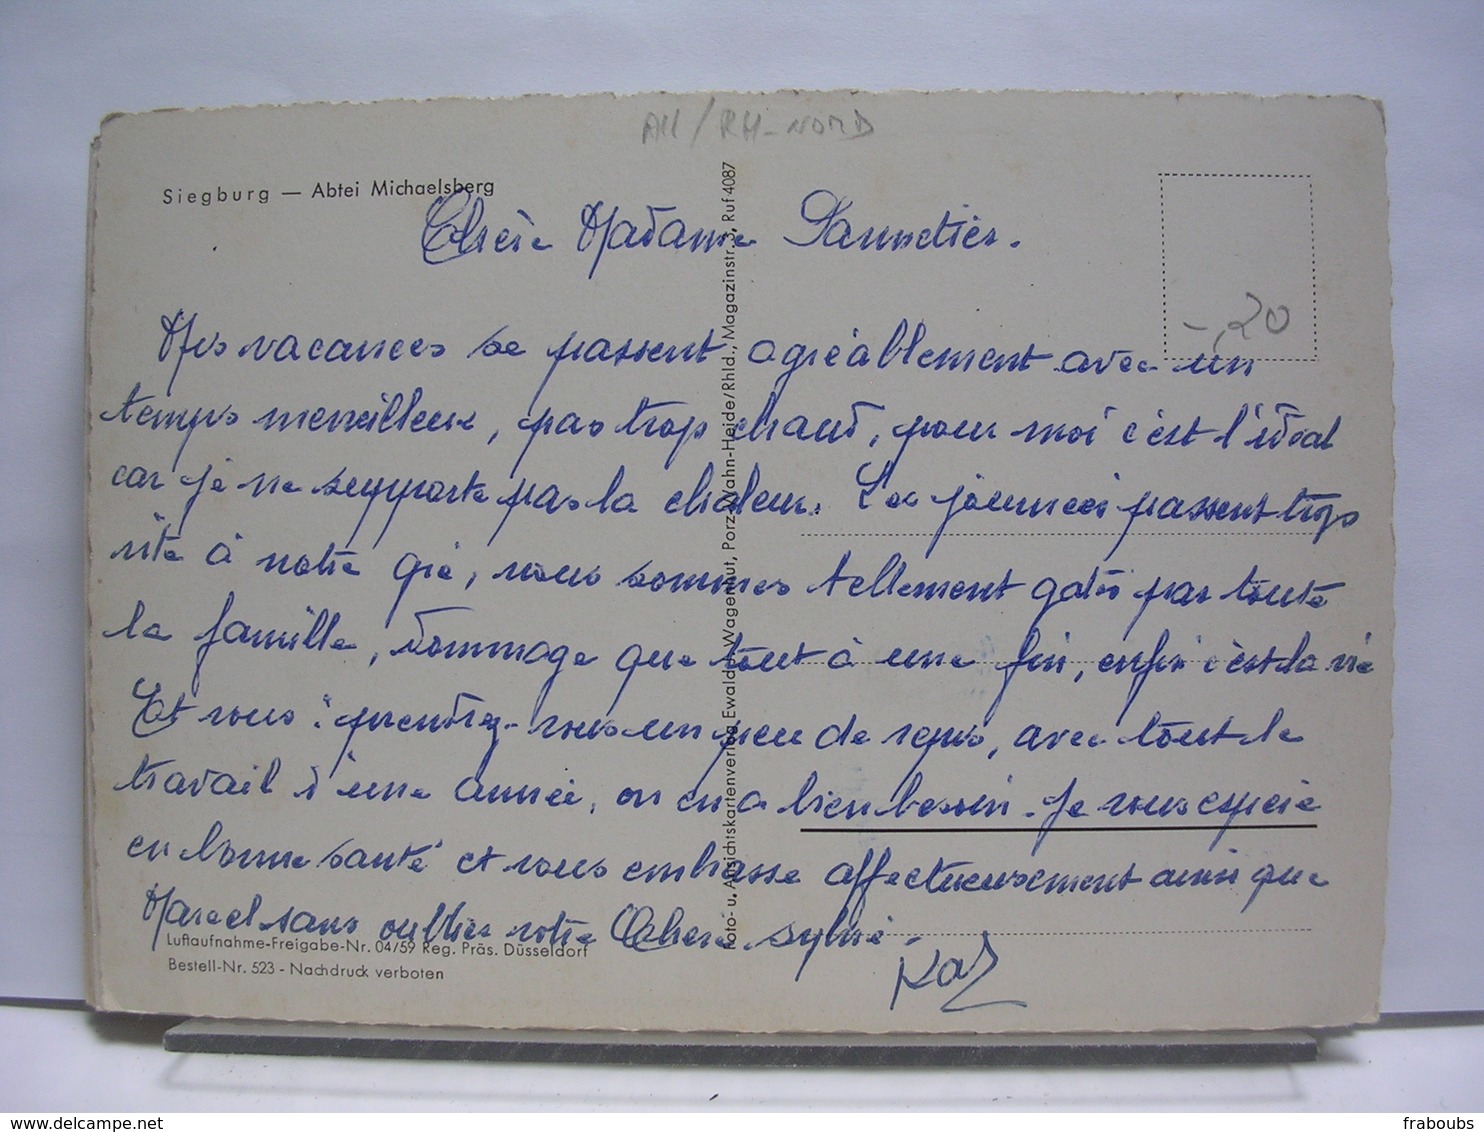 All / RH-NORD
Siegburg — Abtei Michaelsberg
Chère Madame
-,20
Mes vacances se passent agréablement avec un
temps merveilleux, pas trop chaud, pour moi c'est l'idéal
car je ne supporte pas la chaleur. Les journées passent trop
vite à notre gré, nous sommes tellement gatés par toute
la famille, dommage que tout à une fin, enfin c'est la vie
Et vous ? prenez-vous un peu de repos, avec tout le
travail d'une année, on en a bien besoin. Je vous espère
en bonne santé et vous embrasse affectueusement ainsi que
Marcel sans oublier votre Chere Sylvie.
Luftaufnahme-Freigabe-Nr. 04/59 Reg. Präs. Düsseldorf
Bestell-Nr. 523 - Nachdruck verboten
Foto- u. Ansichtskartenverlag Ewald Wagenknut, Porz-Wahn-Heide/Rhld., Magazinstr. 3, Ruf 4087
www.delcampe.net
fraboubs